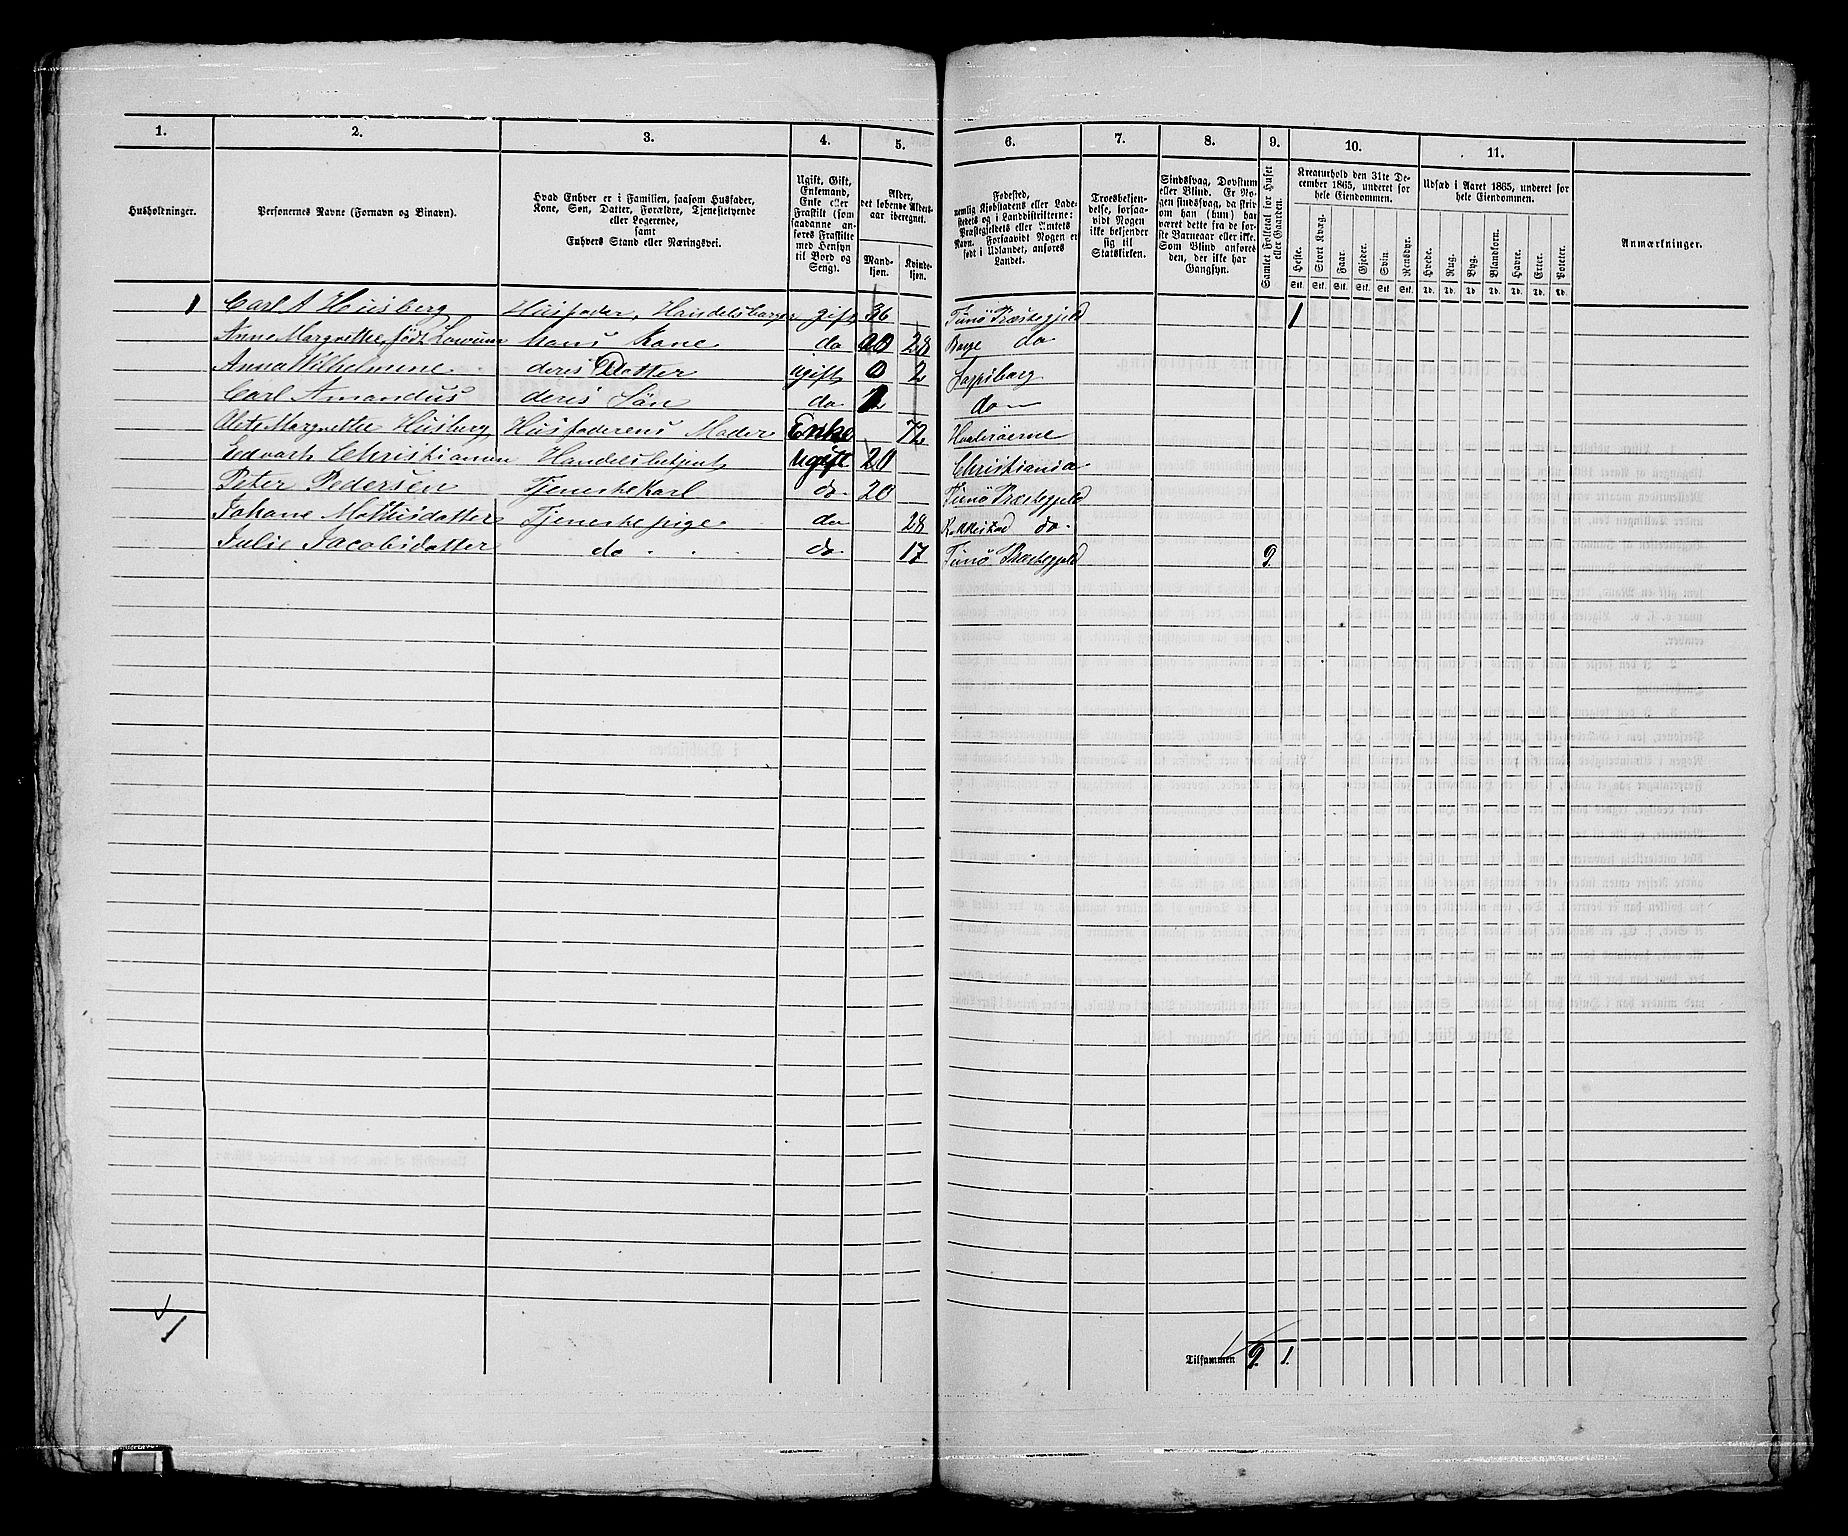 1. 2. 3. 4. 5. 6. 7. 8. 9. 10. 11.
Husholdninger.
Personernes Navne (Fornavn og Binavn).
Hvad Enhver er i Familien, saasom Husfader,
Kone, Søn, Datter, Forældre, Tjenestetyende
eller Logerende,
samt
Enhvers Stand eller Næringsvei.
Ugift, Gift,
Enkemand,
Enke eller
Fraskilt (som
saadanne an-
føres Fraskilte
med Hensyn
til Bord og
Seng).
Alder,
det løbende Alders-
aar iberegnet.
Mand-
kjøn.
Kvinde-
kjøn.
Fødested,
nemlig Kjøbstadens eller Lade-
stedets og i Landdistrikterne:
Præstegjeldets eller Amtets
Navn. Forsaavidt Nogen er
født i Udlandet, anføres
Landet.
Troesbekjen-
delse, forsaa-
vidt Nogen
ikke bekjender
sig til
Statskirken.
Sindssvag, Døvstum
eller Blind. Er No-
gen sindssvag, da skriv
om han (hun) har
været dette fra de før-
ste Barneaar eller ikke.
Som Blind anføres
den, der ikke har
Gangsyn.
Samlet Folketal for Huset
eller Gaarden.
Kreaturhold den 31te De-
cember 1865, underet for
hele Eiendommen.
Heste. Stort Kvæg. Faar. Gjeder. Svin. Rensdyr.
Stk. Stk. Stk. Stk. Stk. Stk.
Udsæd i Aaret 1865, underet for
hele Eiendommen.
Hvede. Rug. Byg. Blandkorn. Havre. Erter. Poteter.
Td. Td. Td. Td. Td. Td. Td.
Anmærkninger.
1 Carl A Husberg Husfader, Handelsborger gift 36 Tunø Præstegjeld 1
Anne Margrethe, født Hans Kone do 28 Borge do
Anna Wilhelmine deres Datter ugift 2 Sarpsborg
Carl Amandus deres Søn do do
Margrethe Husberg Husfaderens Moder Enke 72 Hvaløerne
Edvart Christiansen Handelsbetjent ugift 20 Christiania
Peter Pedersen Tjenestekarl do 20 Tunø Præstegjeld
Johane Tjenestepige do 28 Rakkestad do.
Julie Jacobsdatter do do 17 Tunø Præstegjeld 9.
1
Tilsammen 9. 1.